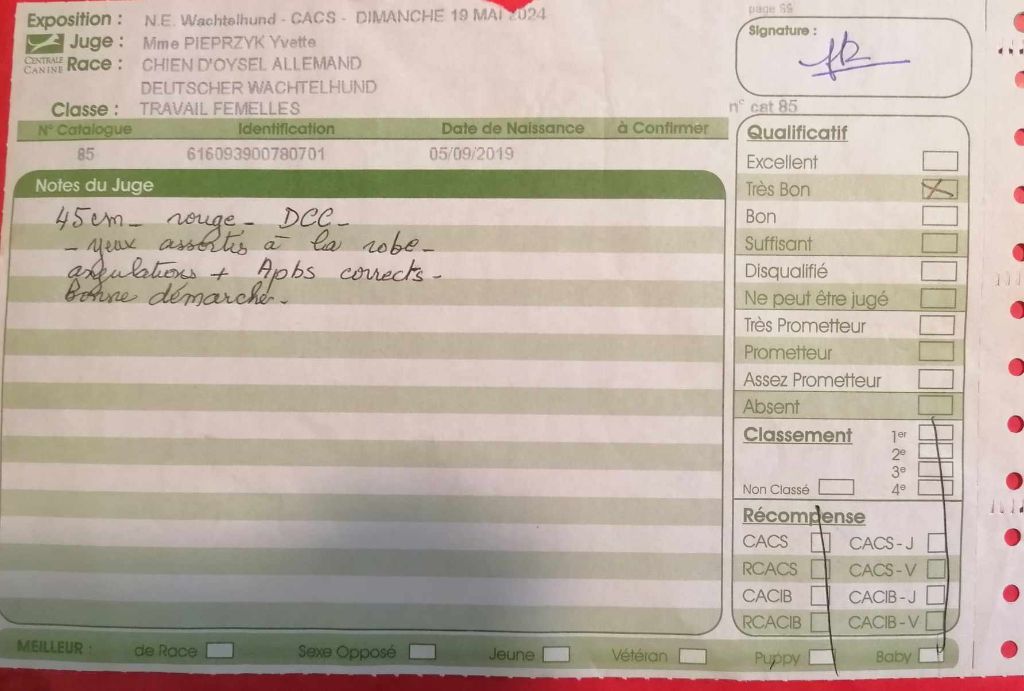 Exposition : N.E. Wachtelhund - CACS - DIMANCHE 19 MAI 2024
Juge : Mme PIEPRZYK Yvette
CENTRALE CANINE
Race : CHIEN D'OYSEL ALLEMAND
DEUTSCHER WACHTELHUND
Classe : TRAVAIL FEMELLES
N° Catalogue Identification Date de Naissance à Confirmer
85 616093900780701 05/09/2019
Notes du Juge
45cm - rouge - DCC -
- yeux assortis à la robe -
angulations + Apbs corrects -
Bonne démarche -
page 59
Signature :
n° cat 85
Qualificatif
Excellent
Très Bon X
Bon
Suffisant
Disqualifié
Ne peut être jugé
Très Prometteur
Prometteur
Assez Prometteur
Absent
Classement 1er
2e
3e
Non Classé 4e
Récompense
CACS CACS - J
RCACS CACS - V
CACIB CACIB - J
RCACIB CACIB - V
MEILLEUR : de Race Sexe Opposé Jeune Vétéran Puppy Baby